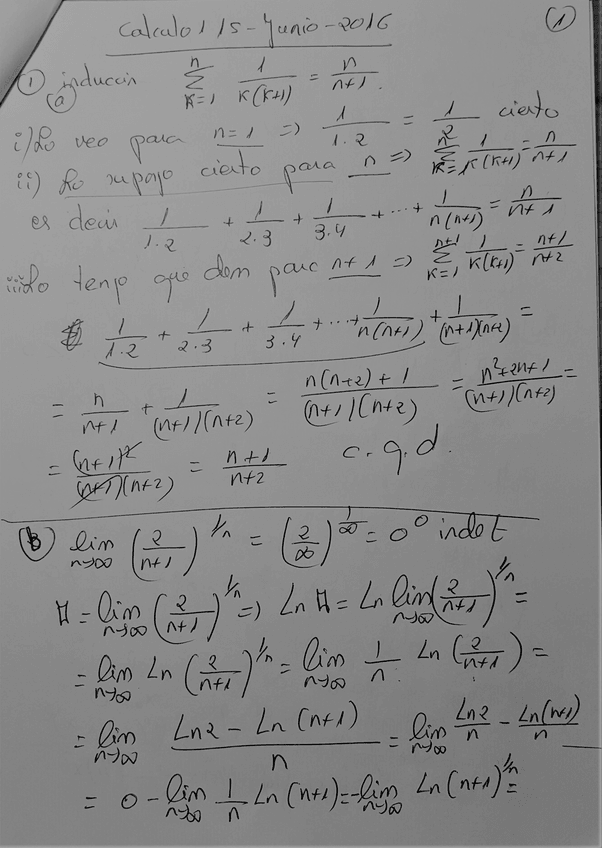 Calculo 1 15-Junio-2016 ①
① inducción \sum_{k=1}^{n} \frac{1}{k(k+1)} = \frac{n}{n+1}.
ⓐ
i) Lo veo para n=1 => \frac{1}{1.2} = \frac{1}{2} cierto
ii) Lo supongo cierto para n => \sum_{k=1}^{n} \frac{1}{k(k+1)} = \frac{n}{n+1}
es decir \frac{1}{1.2} + \frac{1}{2.3} + \frac{1}{3.4} + ... + \frac{1}{n(n+1)} = \frac{n}{n+1}
iii) Lo tengo que dem para n+1 => \sum_{k=1}^{n+1} \frac{1}{k(k+1)} = \frac{n+1}{n+2}
\frac{1}{1.2} + \frac{1}{2.3} + \frac{1}{3.4} + ... + \frac{1}{n(n+1)} + \frac{1}{(n+1)(n+2)} =
= \frac{n}{n+1} + \frac{1}{(n+1)(n+2)} = \frac{n(n+2)+1}{(n+1)(n+2)} = \frac{n^2+2n+1}{(n+1)(n+2)} =
= \frac{(n+1)^2}{(n+1)(n+2)} = \frac{n+1}{n+2} c.q.d.
ⓑ \lim_{n→∞} (\frac{2}{n+1})^{1/n} = (\frac{2}{∞})^{\frac{1}{∞}} = 0^0 indet
A = \lim_{n→∞} (\frac{2}{n+1})^{1/n} => Ln A = Ln \lim_{n→∞} (\frac{2}{n+1})^{1/n} =
= \lim_{n→∞} Ln (\frac{2}{n+1})^{1/n} = \lim_{n→∞} \frac{1}{n} . Ln (\frac{2}{n+1}) =
= \lim_{n→∞} \frac{Ln2 - Ln (n+1)}{n} = \lim_{n→∞} \frac{Ln2}{n} - \frac{Ln(n+1)}{n}
= 0 - \lim_{n→∞} \frac{1}{n} Ln (n+1) = -\lim_{n→∞} Ln (n+1)^{1/n} =